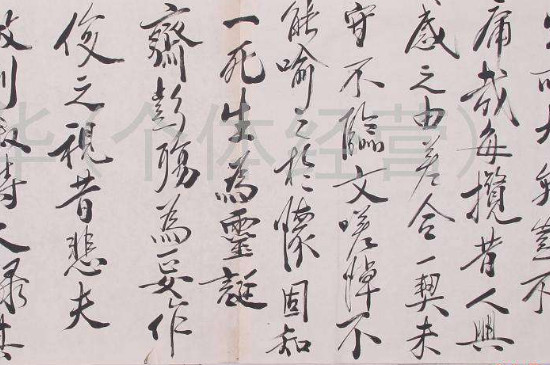 豈不
痛哉每攬昔人興
感之由若合一契未
不臨文嗟悼不
能喻之於懷固知
一死生為虛誕
齊彭殤為妄作
後之視昔悲夫
故列敘時人錄其
华(个体经营)